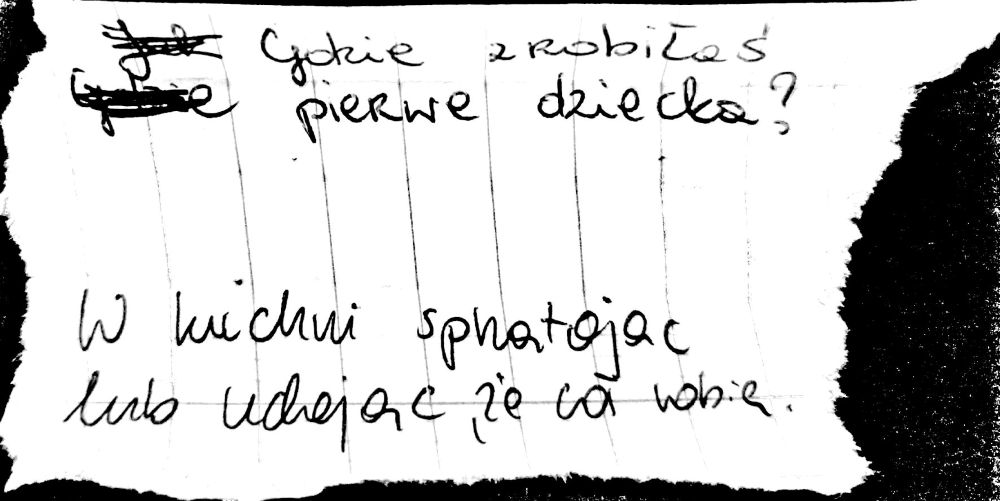 Gdzie zrobiłaś
pierwe dziecko?
W kuchni sprzątając
lub udając, że coś robię.